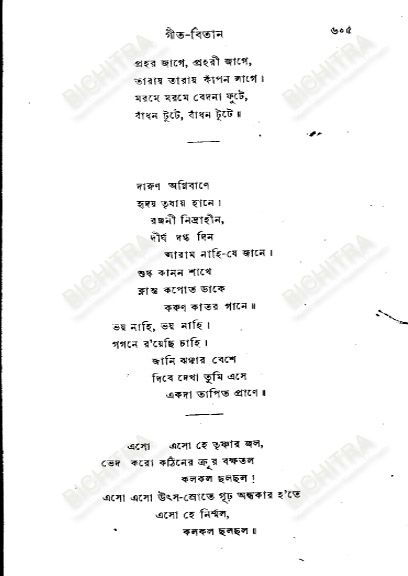 গীত-বিতান
৬০৫
প্রহর জাগে, প্রহরী জাগে,
তারায় তারায় কাঁপন লাগে।
মরমে মরমে বেদনা ফুটে,
বাঁধন টুটে, বাঁধন টুটে॥
দারুণ অগ্নিবাণে
হৃদয় তৃষায় হানে।
রজনী নিদ্রাহীন,
দীর্ঘ দগ্ধ দিন
আরাম নাহি-যে জানে।
শুষ্ক কানন শাখে
ক্লান্ত কপোত ডাকে
করুণ কাতর গানে॥
ভয় নাহি, ভয় নাহি।
গগনে র'য়েছি চাহি।
জানি ঝঞ্ঝার বেশে
দিবে দেখা তুমি এসে
একদা তাপিত প্রাণে॥
এসো এসো হে তৃষ্ণার জল,
ভেদ করো কঠিনের ক্রূর বক্ষতল
কলকল ছলছল!
এসো এসো উৎস-স্রোতে গূঢ় অন্ধকার হ'তে
এসো হে নির্ম্মল,
কলকল ছলছল॥
BICHITRA
BICHITRA
BICHITRA
BICHITRA
BICHITRA
BICHITRA